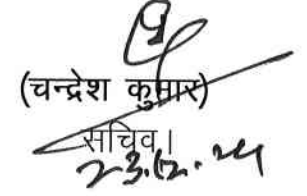 (चन्द्रेश कुमार)
सचिव।
23.12.24